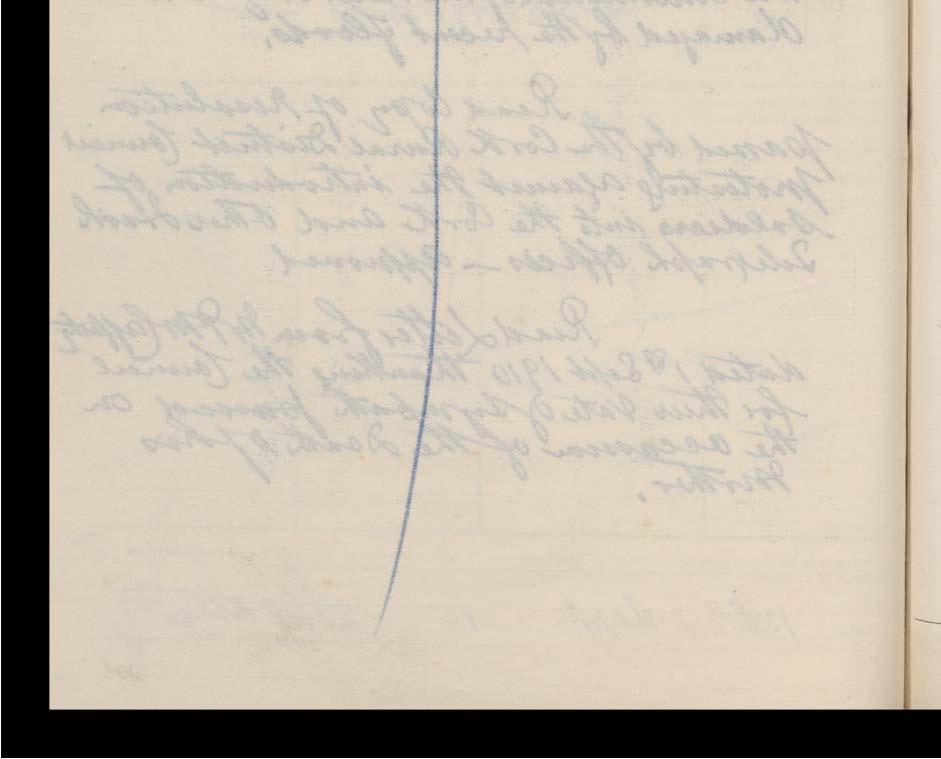 damaged by the recent floods.
Read Copy of resolution
passed by the Cork Rural District Council
protesting against the introduction of
soldiers into the Cork and other Irish
Telegraph Offices — Approved
Read Letter from
dated 1st Sept 1910 thanking the Council
for their vote of sympathy passed on
the occasion of the death of his
Mother.